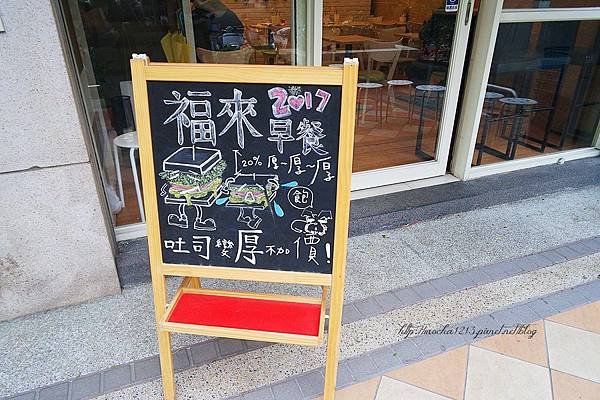 2017
福來早餐
20% 厚~厚~厚
飽
吐司變厚不加價!
http://mocha1213.pixnet.net/blog